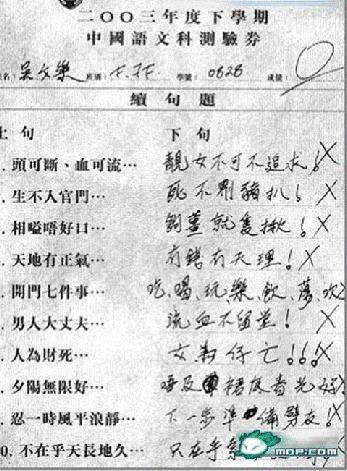 二○○三年度下學期
中國語文科測驗券
名: 吳文樂 班別: 學號: 0828 成績: 0
續句題
上句 下句
. 頭可斷、血可流… 靚女不可不追求! X
. 生不入官門… 死不劏豬扒! X
. 相嗌唔好口… 夠薑就隻揪! X
. 天地有正氣… 有錢有天理! X
. 開門七件事… 吃、喝、玩樂、飲、蕩、吹 X
. 男人大丈夫… 流血不留 ! X
. 人為財死… 女為仔亡!!! X
. 夕陽無限好… 唔及 糖 X
. 忍一時風平浪靜… 下一步準備劈友! X
0. 不在乎天長地久… 只在乎
mop.com